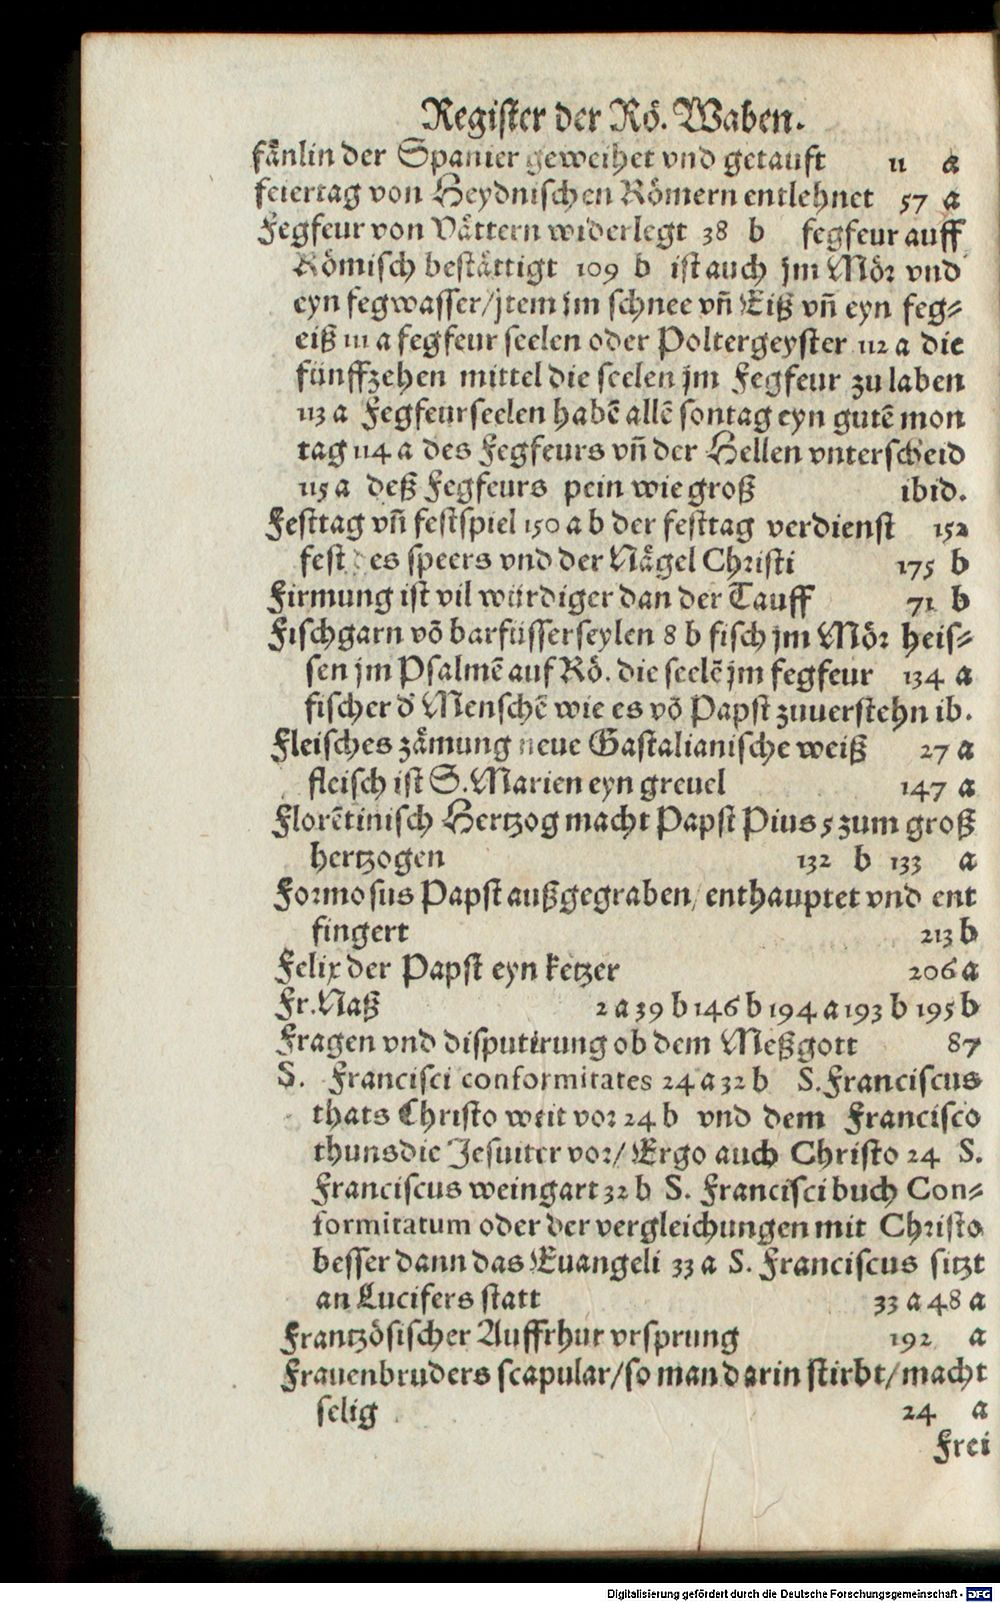 Register der Rö. Waben.
fänlin der Spanier geweihet vnd getaufft 11 a
feiertag von Heydnischen Römern entlehnet 57 a
Fegfeur von Vättern widerlegt 38 b fegfeur auff
Römisch bestättigt 109 b ist auch jm Mör vnd
eyn fegwasser/jtem im schnee vñ Eiß vñ eyn feg-
eiß 111 a fegfeur seelen oder Poltergeyster 112 a die
fünffzehen mittel die seelen jm Fegfeur zu laben
113 a Fegfeurseelen habē allē sontag eyn gutē mon
tag 114 a des Fegfeurs vñ der Hellen vnterscheid
115 a deß Fegfeurs pein wie groß ibid.
Festtag vñ festspiel 150 a b der festtag verdienst 152
fest des speers vnd der Nägel Christi 175 b
Firmung ist vil würdiger dan der Tauff 71 b
Fischgarn vō barfüsserseylen 8 b fisch jm Mör heis-
sen jm Psalmē auf Rö. die seelē jm fegfeur 134 a
fischer d' Menschē wie es vō Papst zuuerstehn ib.
Fleisches zämung neue Gastalianische weiß 27 a
fleisch ist S. Marien eyn greuel 147 a
Florētinisch Hertzog macht Papst Pius 5 zum groß
hertzogen 132 b 133 a
Formosus Papst außgegraben/enthauptet vnd ent
fingert 213 b
Felix der Papst eyn ketzer 206 a
Fr. Naß 2 a 39 b 146 b 194 a 193 b 195 b
Fragen vnd disputirung ob dem Meßgott 87
S. Francisci conformitates 24 a 32 b S. Franciscus
thats Christo weit vor 24 b vnd dem Francisco
thuns die Jesuiter vor/Ergo auch Christo 24 S.
Franciscus weingart 32 b S. Francisci buch Con-
formitatum oder der vergleichungen mit Christo
besser dann das Euangeli 33 a S. Franciscus sitzt
an Lucifers statt 33 a 48 a
Frantzösischer Auffrhur vrsprung 192 a
Frauenbruders scapular/so man darin stirbt/macht
selig 24 a
Frei
Digitalisierung gefördert durch die Deutsche Forschungsgemeinschaft - DFG